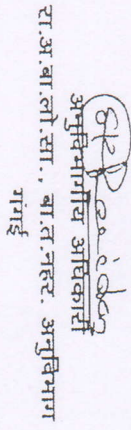 अनुविभागीय अधिकारी
रा.अ.बा.लो.सा., बा.त.नहर. अनुविभाग
गंगई